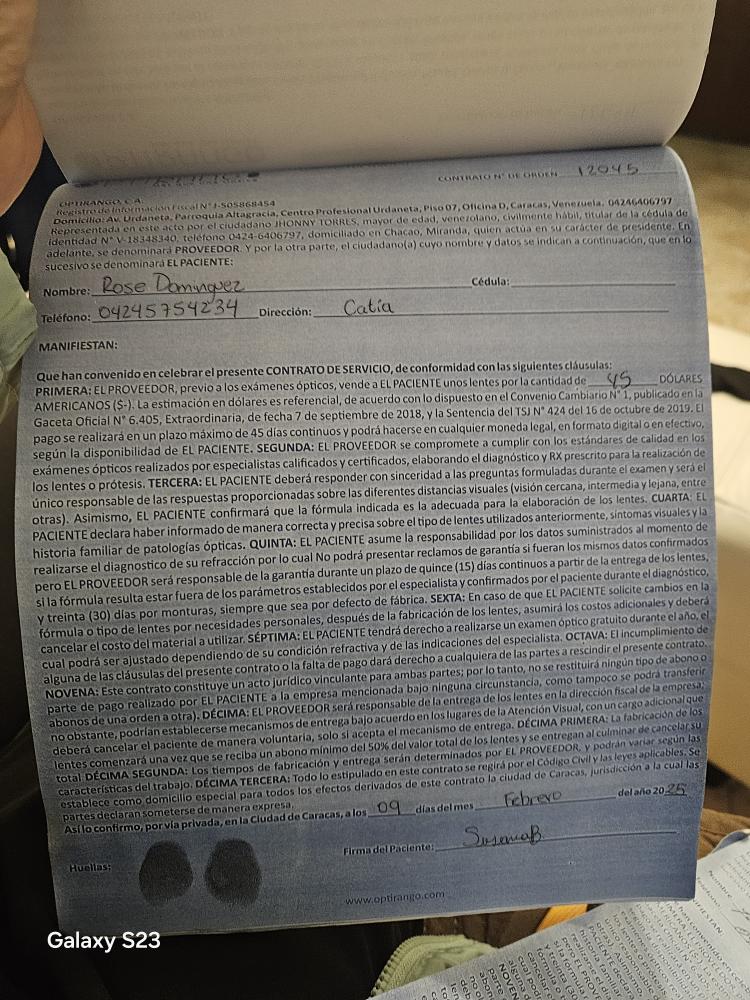 CONTRATO N° DE ORDEN 12045
OPTIRANGO, C.A.
Registro de Información Fiscal N° J-505868454
Domicilio: Av. Urdaneta, Parroquia Altagracia, Centro Profesional Urdaneta, Piso 07, Oficina D, Caracas, Venezuela. 04246406797
Representada en este acto por el ciudadano JHONNY TORRES, mayor de edad, venezolano, civilmente hábil, titular de la cédula de
identidad N° V-18348340, teléfono 0424-6406797, domiciliado en Chacao, Miranda, quien actúa en su carácter de presidente. En
adelante, se denominará PROVEEDOR. Y por la otra parte, el ciudadano(a) cuyo nombre y datos se indican a continuación, que en lo
sucesivo se denominará EL PACIENTE:
Nombre: Rose Dominguez Cédula:
Teléfono: 04245754234 Dirección: Catia
MANIFIESTAN:
Que han convenido en celebrar el presente CONTRATO DE SERVICIO, de conformidad con las siguientes cláusulas:
PRIMERA: EL PROVEEDOR, previo a los exámenes ópticos, vende a EL PACIENTE unos lentes por la cantidad de 45 DÓLARES
AMERICANOS ($-). La estimación en dólares es referencial, de acuerdo con lo dispuesto en el Convenio Cambiario N° 1, publicado en la
Gaceta Oficial N° 6.405, Extraordinaria, de fecha 7 de septiembre de 2018, y la Sentencia del TSJ N° 424 del 16 de octubre de 2019. El
pago se realizará en un plazo máximo de 45 días continuos y podrá hacerse en cualquier moneda legal, en formato digital o en efectivo,
según la disponibilidad de EL PACIENTE. SEGUNDA: EL PROVEEDOR se compromete a cumplir con los estándares de calidad en los
exámenes ópticos realizados por especialistas calificados y certificados, elaborando el diagnóstico y RX prescrito para la realización de
los lentes o prótesis. TERCERA: EL PACIENTE deberá responder con sinceridad a las preguntas formuladas durante el examen y será el
único responsable de las respuestas proporcionadas sobre las diferentes distancias visuales (visión cercana, intermedia y lejana, entre
otras). Asimismo, EL PACIENTE confirmará que la fórmula indicada es la adecuada para la elaboración de los lentes. CUARTA: EL
PACIENTE declara haber informado de manera correcta y precisa sobre el tipo de lentes utilizados anteriormente, síntomas visuales y la
historia familiar de patologías ópticas. QUINTA: EL PACIENTE asume la responsabilidad por los datos suministrados al momento de
realizarse el diagnostico de su refracción por lo cual No podrá presentar reclamos de garantía si fueran los mismos datos confirmados
pero EL PROVEEDOR será responsable de la garantía durante un plazo de quince (15) días continuos a partir de la entrega de los lentes,
si la fórmula resulta estar fuera de los parámetros establecidos por el especialista y confirmados por el paciente durante el diagnóstico,
y treinta (30) días por monturas, siempre que sea por defecto de fábrica. SEXTA: En caso de que EL PACIENTE solicite cambios en la
fórmula o tipo de lentes por necesidades personales, después de la fabricación de los lentes, asumirá los costos adicionales y deberá
cancelar el costo del material a utilizar. SÉPTIMA: EL PACIENTE tendrá derecho a realizarse un examen óptico gratuito durante el año, el
cual podrá ser ajustado dependiendo de su condición refractiva y de las indicaciones del especialista. OCTAVA: El incumplimiento de
alguna de las cláusulas del presente contrato o la falta de pago dará derecho a cualquiera de las partes a rescindir el presente contrato.
NOVENA: Este contrato constituye un acto jurídico vinculante para ambas partes; por lo tanto, no se restituirá ningún tipo de abono o
parte de pago realizado por EL PACIENTE a la empresa mencionada bajo ninguna circunstancia, como tampoco se podrá transferir
abonos de una orden a otra). DÉCIMA: EL PROVEEDOR será responsable de la entrega de los lentes en la dirección fiscal de la empresa;
no obstante, podrían establecerse mecanismos de entrega bajo acuerdo en los lugares de la Atención Visual, con un cargo adicional que
deberá cancelar el paciente de manera voluntaria, solo si acepta el mecanismo de entrega. DÉCIMA PRIMERA: La fabricación de los
lentes comenzará una vez que se reciba un abono mínimo del 50% del valor total de los lentes y se entregan al culminar de cancelar su
total. DÉCIMA SEGUNDA: Los tiempos de fabricación y entrega serán determinados por EL PROVEEDOR, y podrán variar según las
características del trabajo. DÉCIMA TERCERA: Todo lo estipulado en este contrato se regirá por el Código Civil y las leyes aplicables. Se
establece como domicilio especial para todos los efectos derivados de este contrato la ciudad de Caracas, jurisdicción a la cual las
partes declaran someterse de manera expresa.
Así lo confirmo, por vía privada, en la Ciudad de Caracas, a los 09 días del mes Febrero del año 2025
Firma del Paciente: SusanaB
Huellas:
www.optirango.com
Galaxy S23